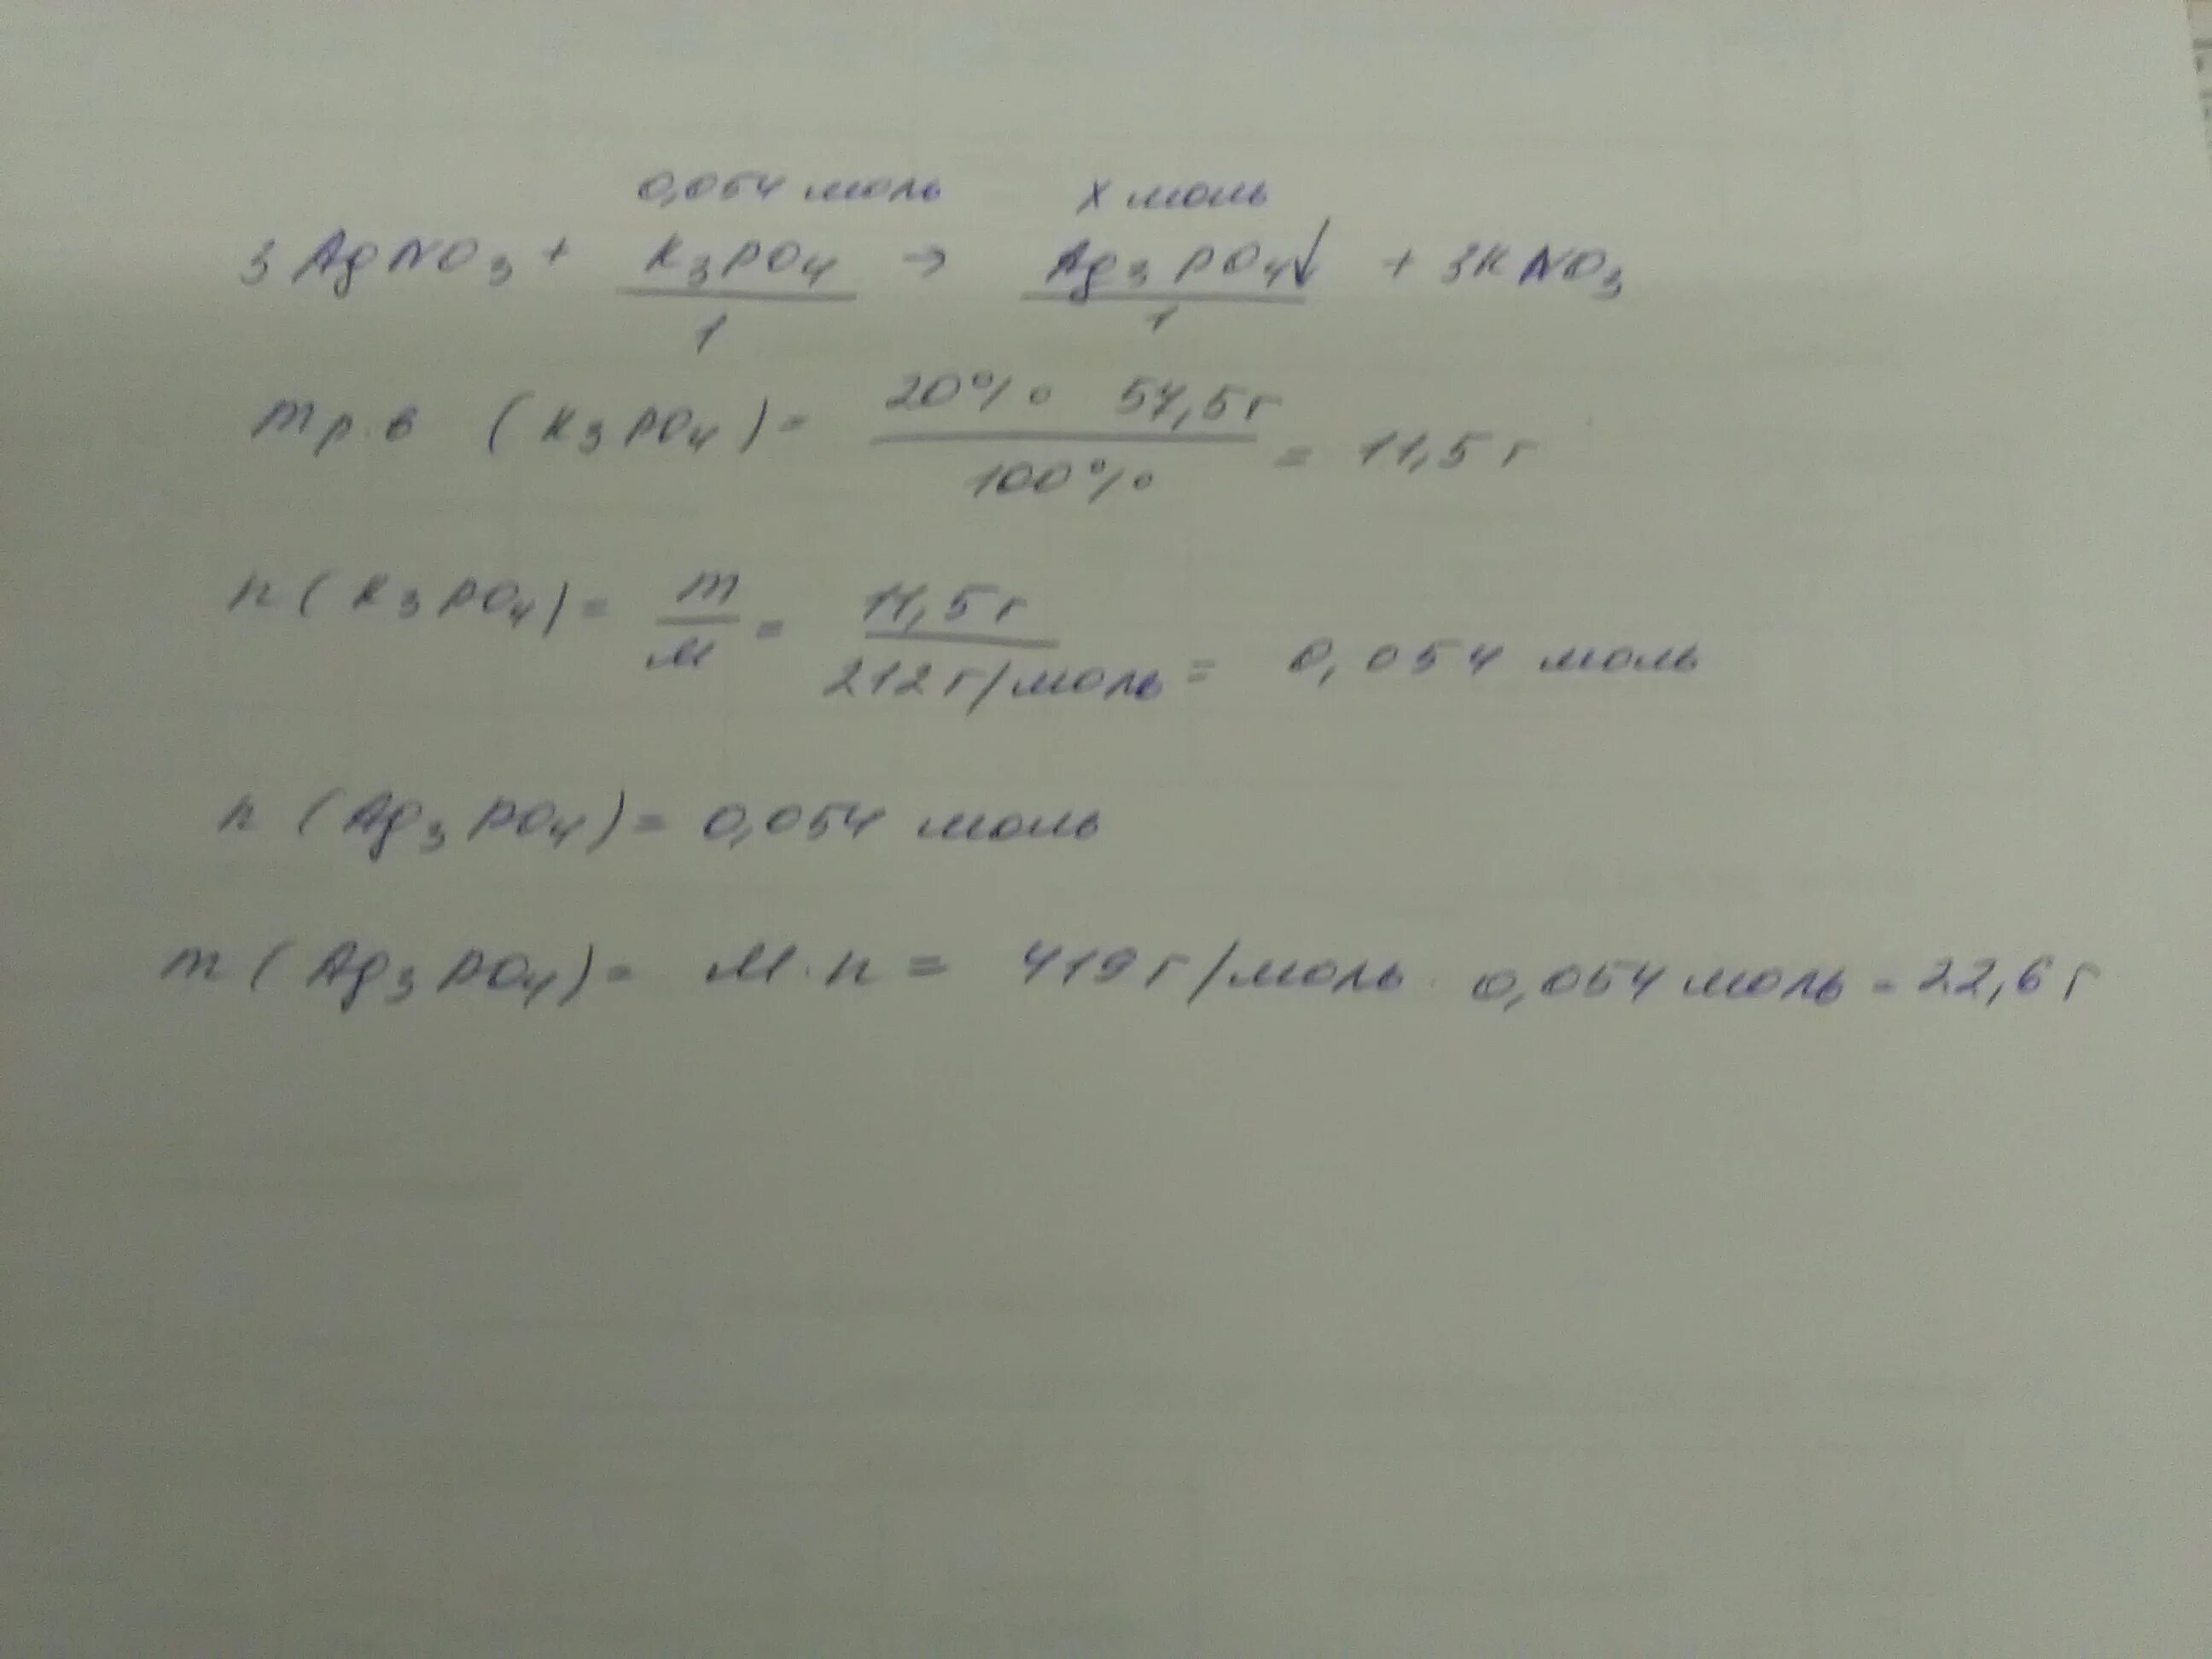 0,054 моль х моль
3 AgNO3 + K3PO4 → Ag3PO4↓ + 3KNO3
1 1
m р.в (K3PO4) = 20% 57,5г / 100% = 11,5 г
n (K3PO4) = m / M = 11,5 г / 212 г/моль = 0,054 моль
n (Ag3PO4) = 0,054 моль
m (Ag3PO4) = M · n = 419 г/моль · 0,054 моль = 22,6 г